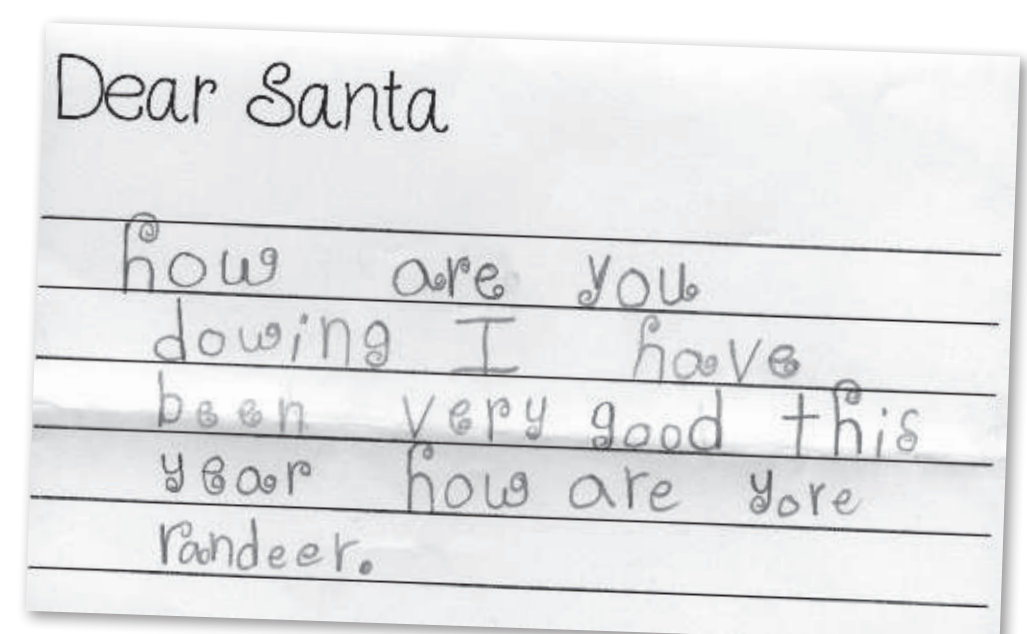 Dear Santa
how are you
dowing I have
been very good this
year how are yore
randeer.